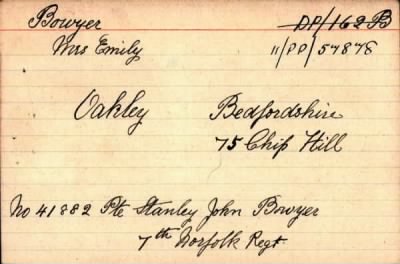 Bowyer DP/162B
Mrs Emily 11/DP/57878
Oakley Bedfordshire
75 Chip Hill
No 41882 Pte Stanley John Bowyer
7th Norfolk Regt